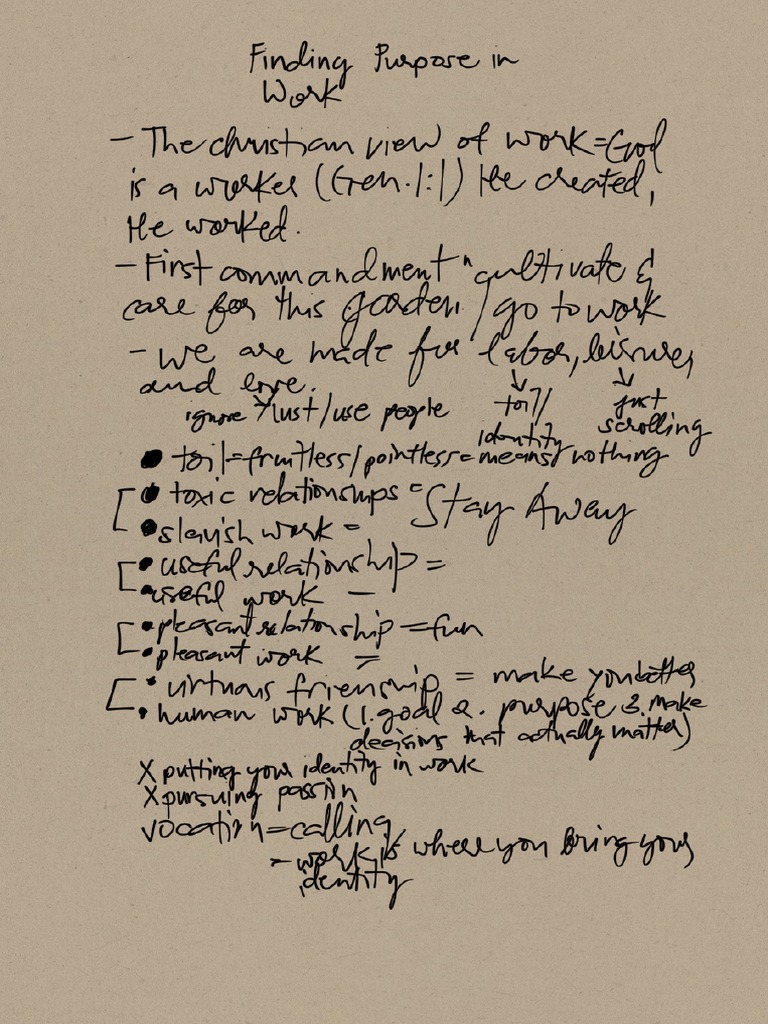 Finding Purpose in
Work
- The christian view of work=God
is a worker (Gen. 1:1) He created,
He worked.
- First commandment "cultivate &
care for this garden / go to work
- we are made for labor, leisure,
and love.
ignore / lust / use people
toil / identity
just scrolling
• toil=fruitless/pointless=means nothing
• toxic relationships = Stay Away
• slavish work =
• useful relationship =
• useful work -
• pleasant relationship = fun
• pleasant work =
• virtuous frienship = make you better
• human work (1. goal 2. purpose 3. make
decisions that actually matter)
X putting your identity in work
X pursuing passion
vocation=calling
- work is where you bring your
identity